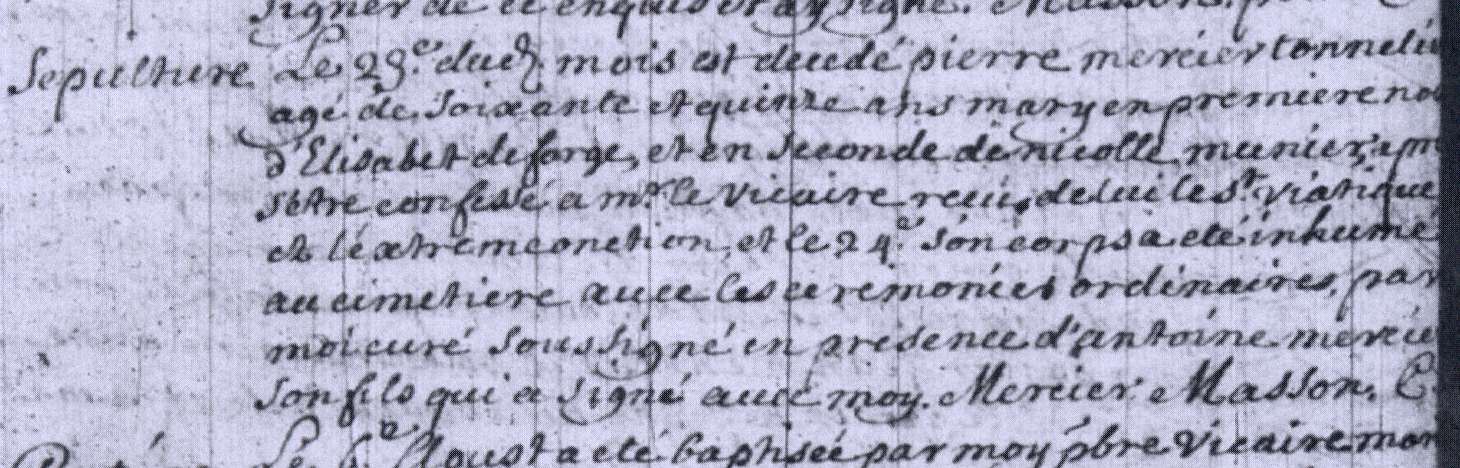 signer de ce enquis et ay signé. Masson.
Sepulture Le 23.e dud. mois est decedé pierre mercier tonnelie
agé de soixante et quinze ans mary en premiere no
d'Elisabet deforge, et en seconde de nicolle munier, apr
s'être confessé a mr. le vicaire reçu de lui le st. viatique
et l'extremeonction, et le 24.e son corps a eté inhumé
au cimetiere avec les ceremonies ordinaires, par
moi curé soussigné en presence d'antoine mercie
son fils qui a signé avec moy. Mercier Masson. C.
Le 6.e Aoust a eté baptisée par moy pbre vicaire